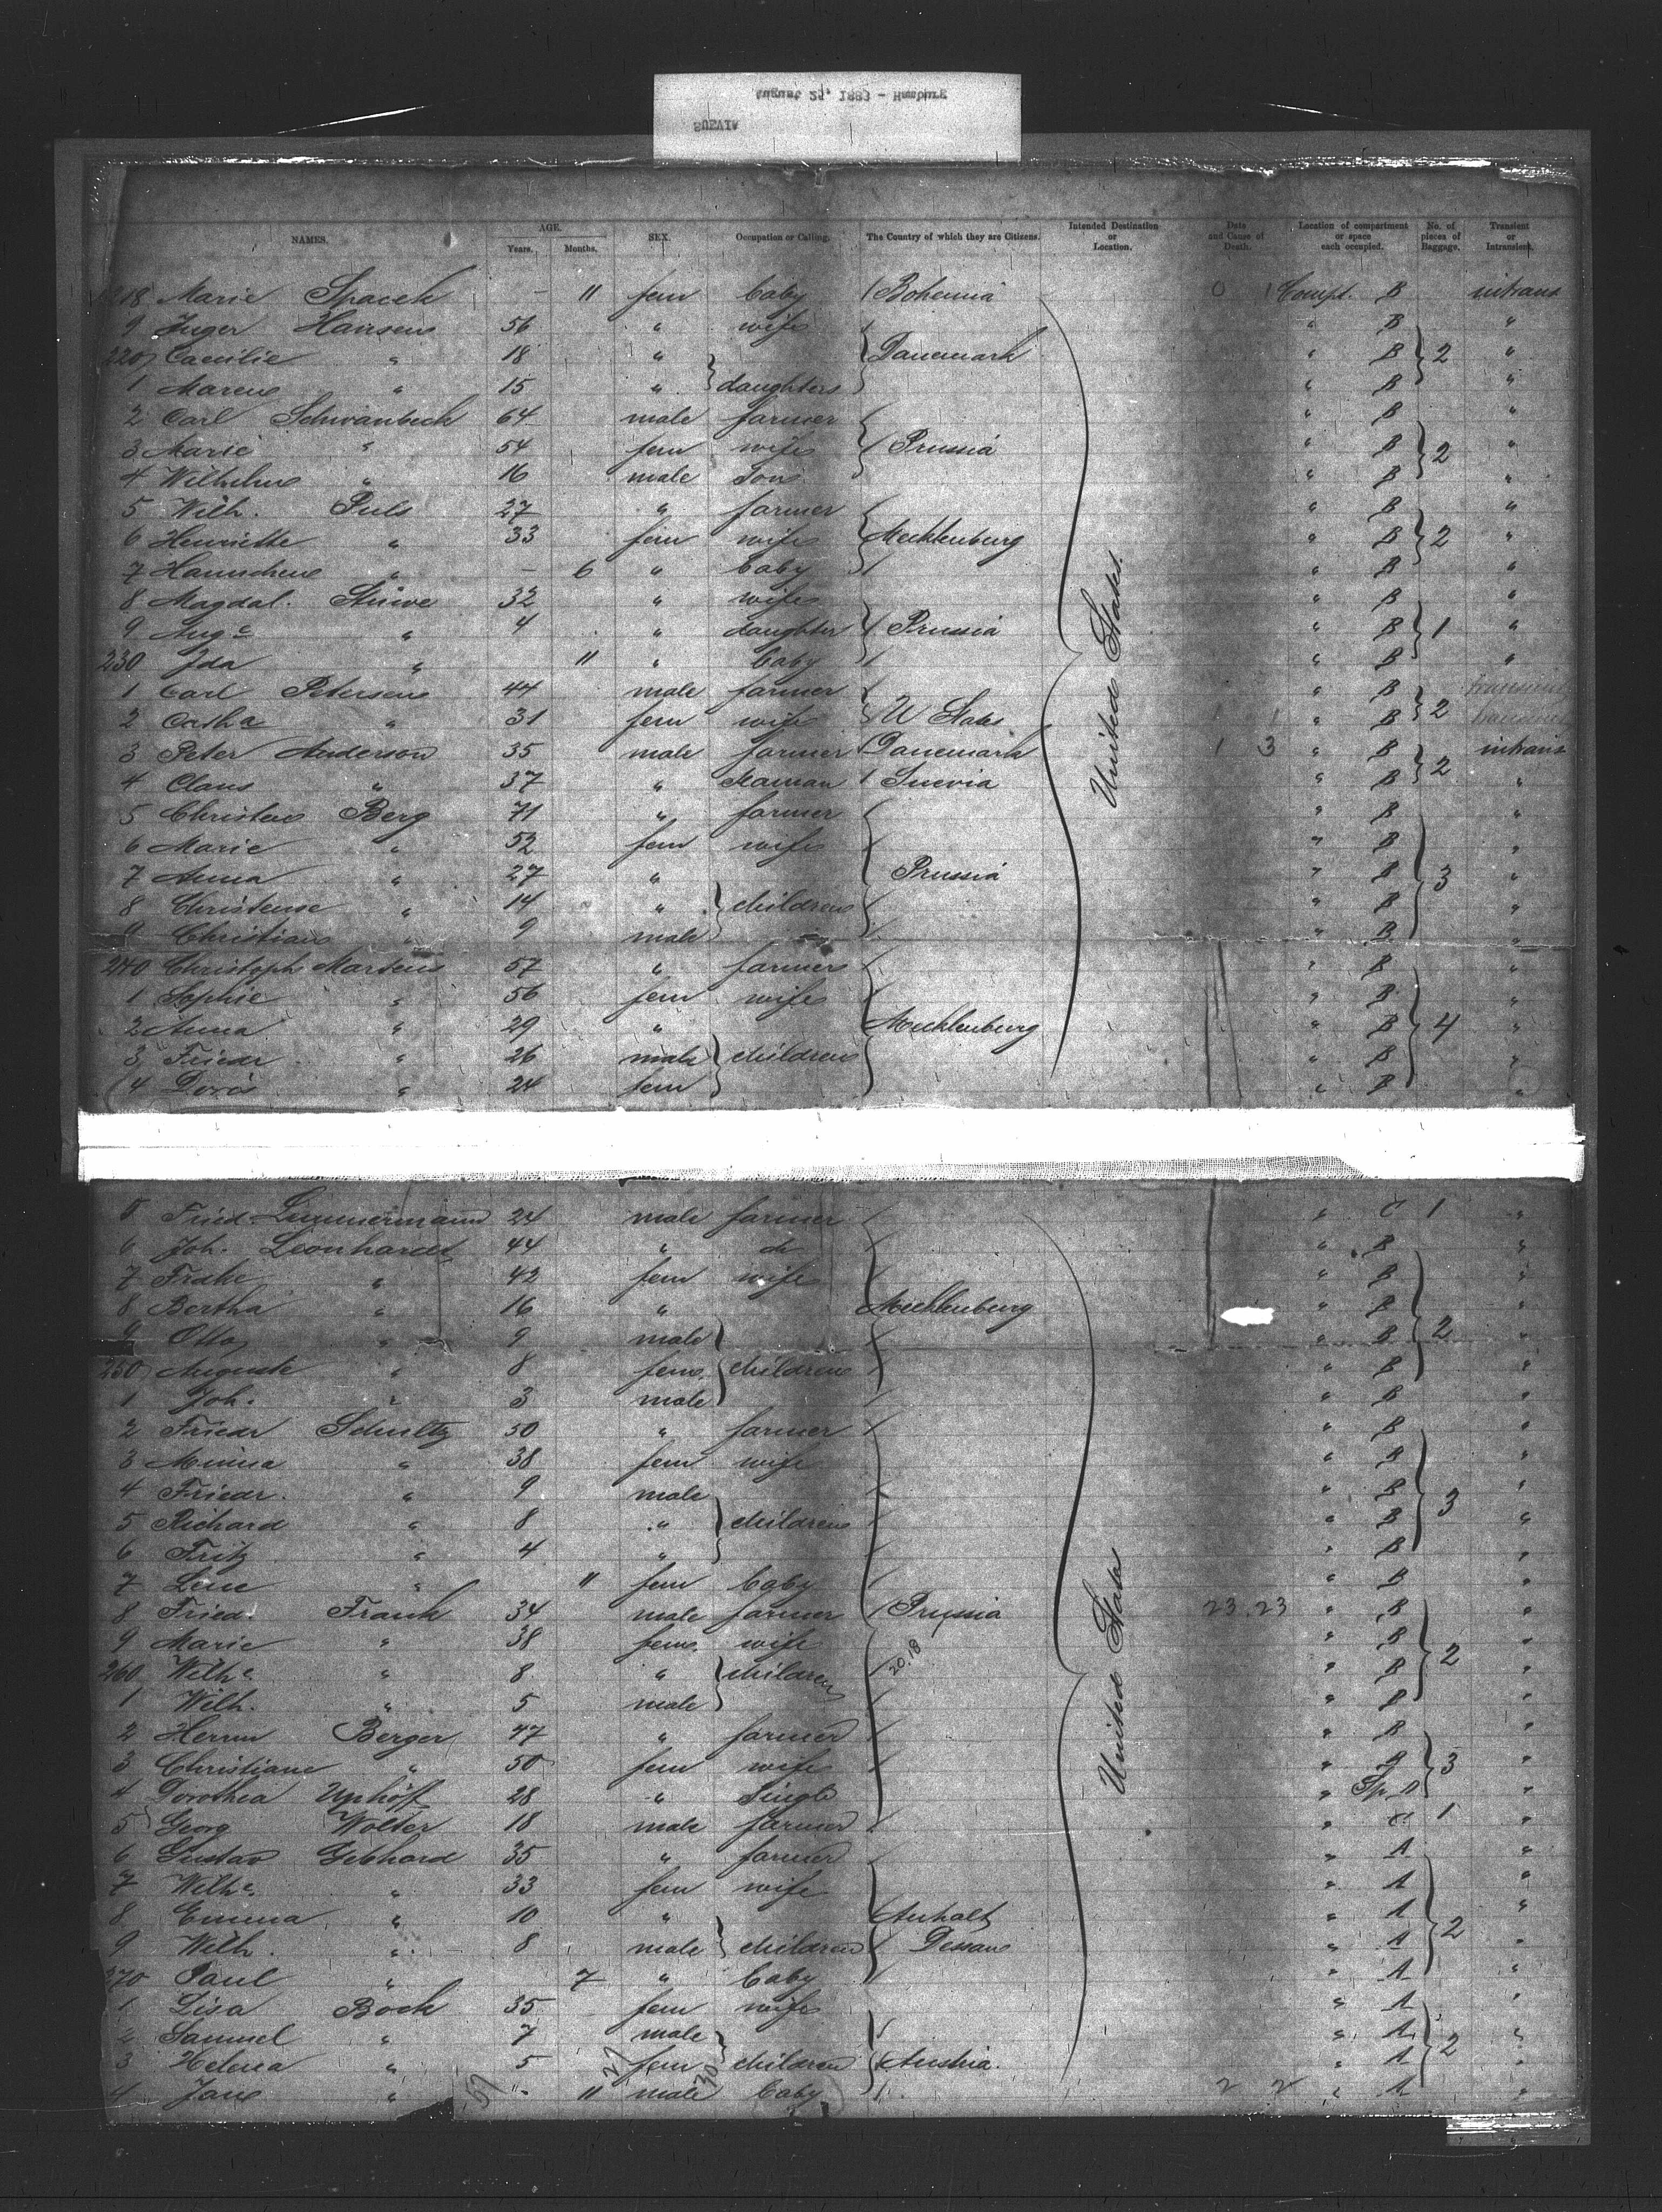 August 25, 1883 - Hamburg
SUEVIA
NAMES. AGE. Years. Months. SEX. Occupation or Calling. The Country of which they are Citizens. Intended Destination or Location. Date and Cause of Death. Location of compartment or space each occupied. No. of pieces of Baggage. Transient or Intransient.
218 Marie Spacek - 11 fem baby Bohemia 0 1 Compt. B intrans
9 Inger Hansen 56 " wife " B "
220 Caecilie " 18 " Danemark " B 2 "
1 Maren " 15 " daughters " B "
2 Carl Schwanbeck 64 male farmer " B "
3 Marie " 54 fem wife Prussia " B 2 "
4 Wilhelm " 16 male Son " B "
5 Wilh. Puls 27 " farmer " B "
6 Henriette " 33 fem wife Mecklenburg " B 2 "
7 Hannchen " - 6 " baby " B "
8 Magdal. Stüwe 32 " wife " B "
9 Auge " 4 " daughter Prussia " B 1 "
230 Ida " 11 " baby " B "
1 Carl Petersen 44 male farmer " B transient
2 Catha " 31 fem wife U States " B 2 transient
3 Peter Anderson 35 male farmer Danemark 1 3 " B intrans
4 Claus " 37 " Seaman " B 2 "
5 Christen Berg 71 " farmer " B "
6 Marie " 52 fem wife " B "
7 Anna " 27 " Prussia " B 3 "
8 Christense " 14 " children " B "
9 Christian " 9 male " B "
240 Christoph Martens 57 " farmer " B "
1 Sophie " 56 fem wife " B "
2 Anna " 29 " Mecklenburg " B 4 "
3 Friedr " 26 male children " B "
4 Doris " 24 fem " B "
United States.
5 Fried. 24 male farmer " C 1 "
6 Joh. Leonhardt 44 " do " B "
7 " 42 fem wife " B "
8 Bertha " 16 " Mecklenburg " B "
9 Otto " 9 male " B 2 "
250 Auguste " 8 fem. children " B "
1 Joh. " 3 male " B "
2 Friedr Schultz 50 " farmer " B "
3 Minna " 38 fem wife " B "
4 Friedr. " 9 male " B "
5 Richard " 8 " children " B 3 "
6 Fritz " 4 " " B "
7 Line " 11 fem baby " B "
8 Fried. Frank 34 male farmer Prussia 23 23 " B "
9 Marie " 38 fem. wife " B "
260 Wilhe " 8 " children 20.18 " B 2 "
1 Wilh. " 5 male " B "
2 Herm Berger 47 " farmer " B "
3 Christiane " 50 fem wife " 3 "
4 Dorothea Uphoff 28 " Single " "
5 Georg Wolter 18 male farmer " C 1 "
6 Gustav Gebhard 35 " farmer " A "
7 Wilhe " 33 fem wife " A "
8 Emma " 10 " Anhalt " A "
9 Wilh. " 8 male children Dessau " A 2 "
270 Paul " 7 " baby " A "
1 Lisa Bock 35 fem wife " A "
2 Samuel " 7 male " A "
3 Helena " 5 fem children Austria. " A 2 "
4 " " 11 male baby 2 2 " A "
United States